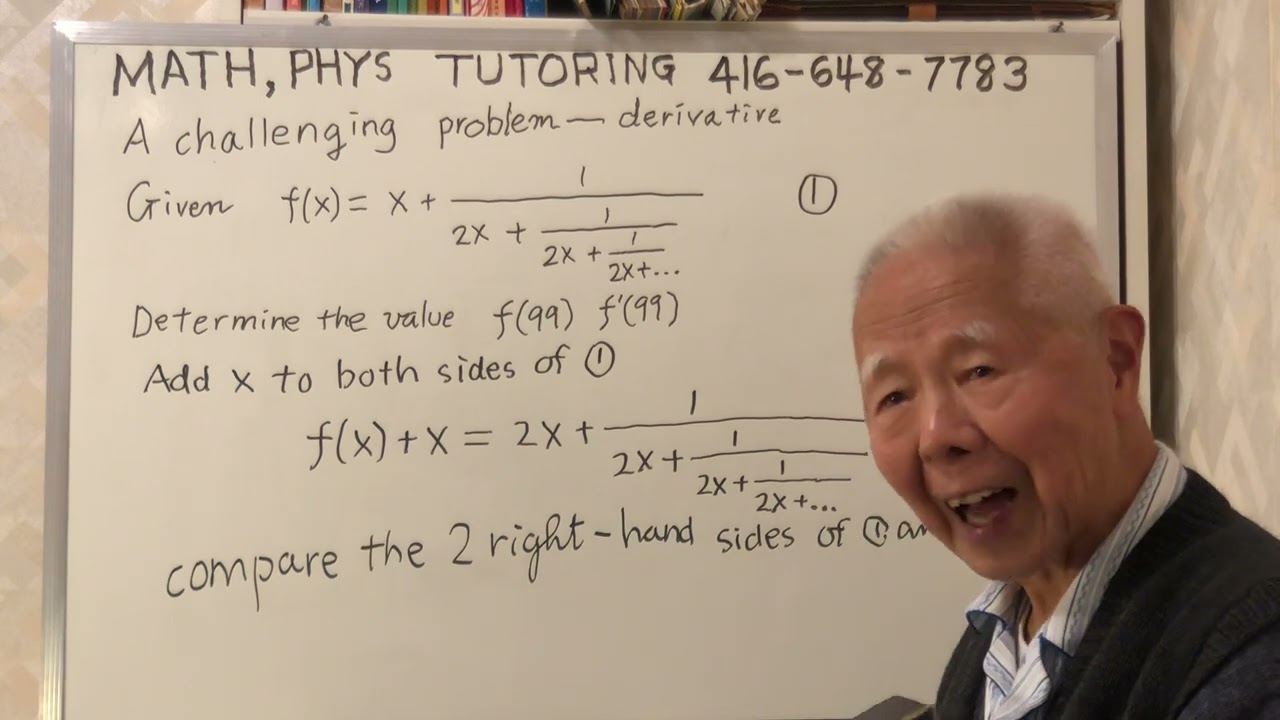 MATH, PHYS TUTORING 416-648-7783
A challenging problem — derivative
Given f(x) = x + 1/(2x + 1/(2x + 1/(2x + ...))) ①
Determine the value f(99) f'(99)
Add x to both sides of ①
f(x) + x = 2x + 1/(2x + 1/(2x + 1/(2x + ...)))
compare the 2 right-hand sides of ①